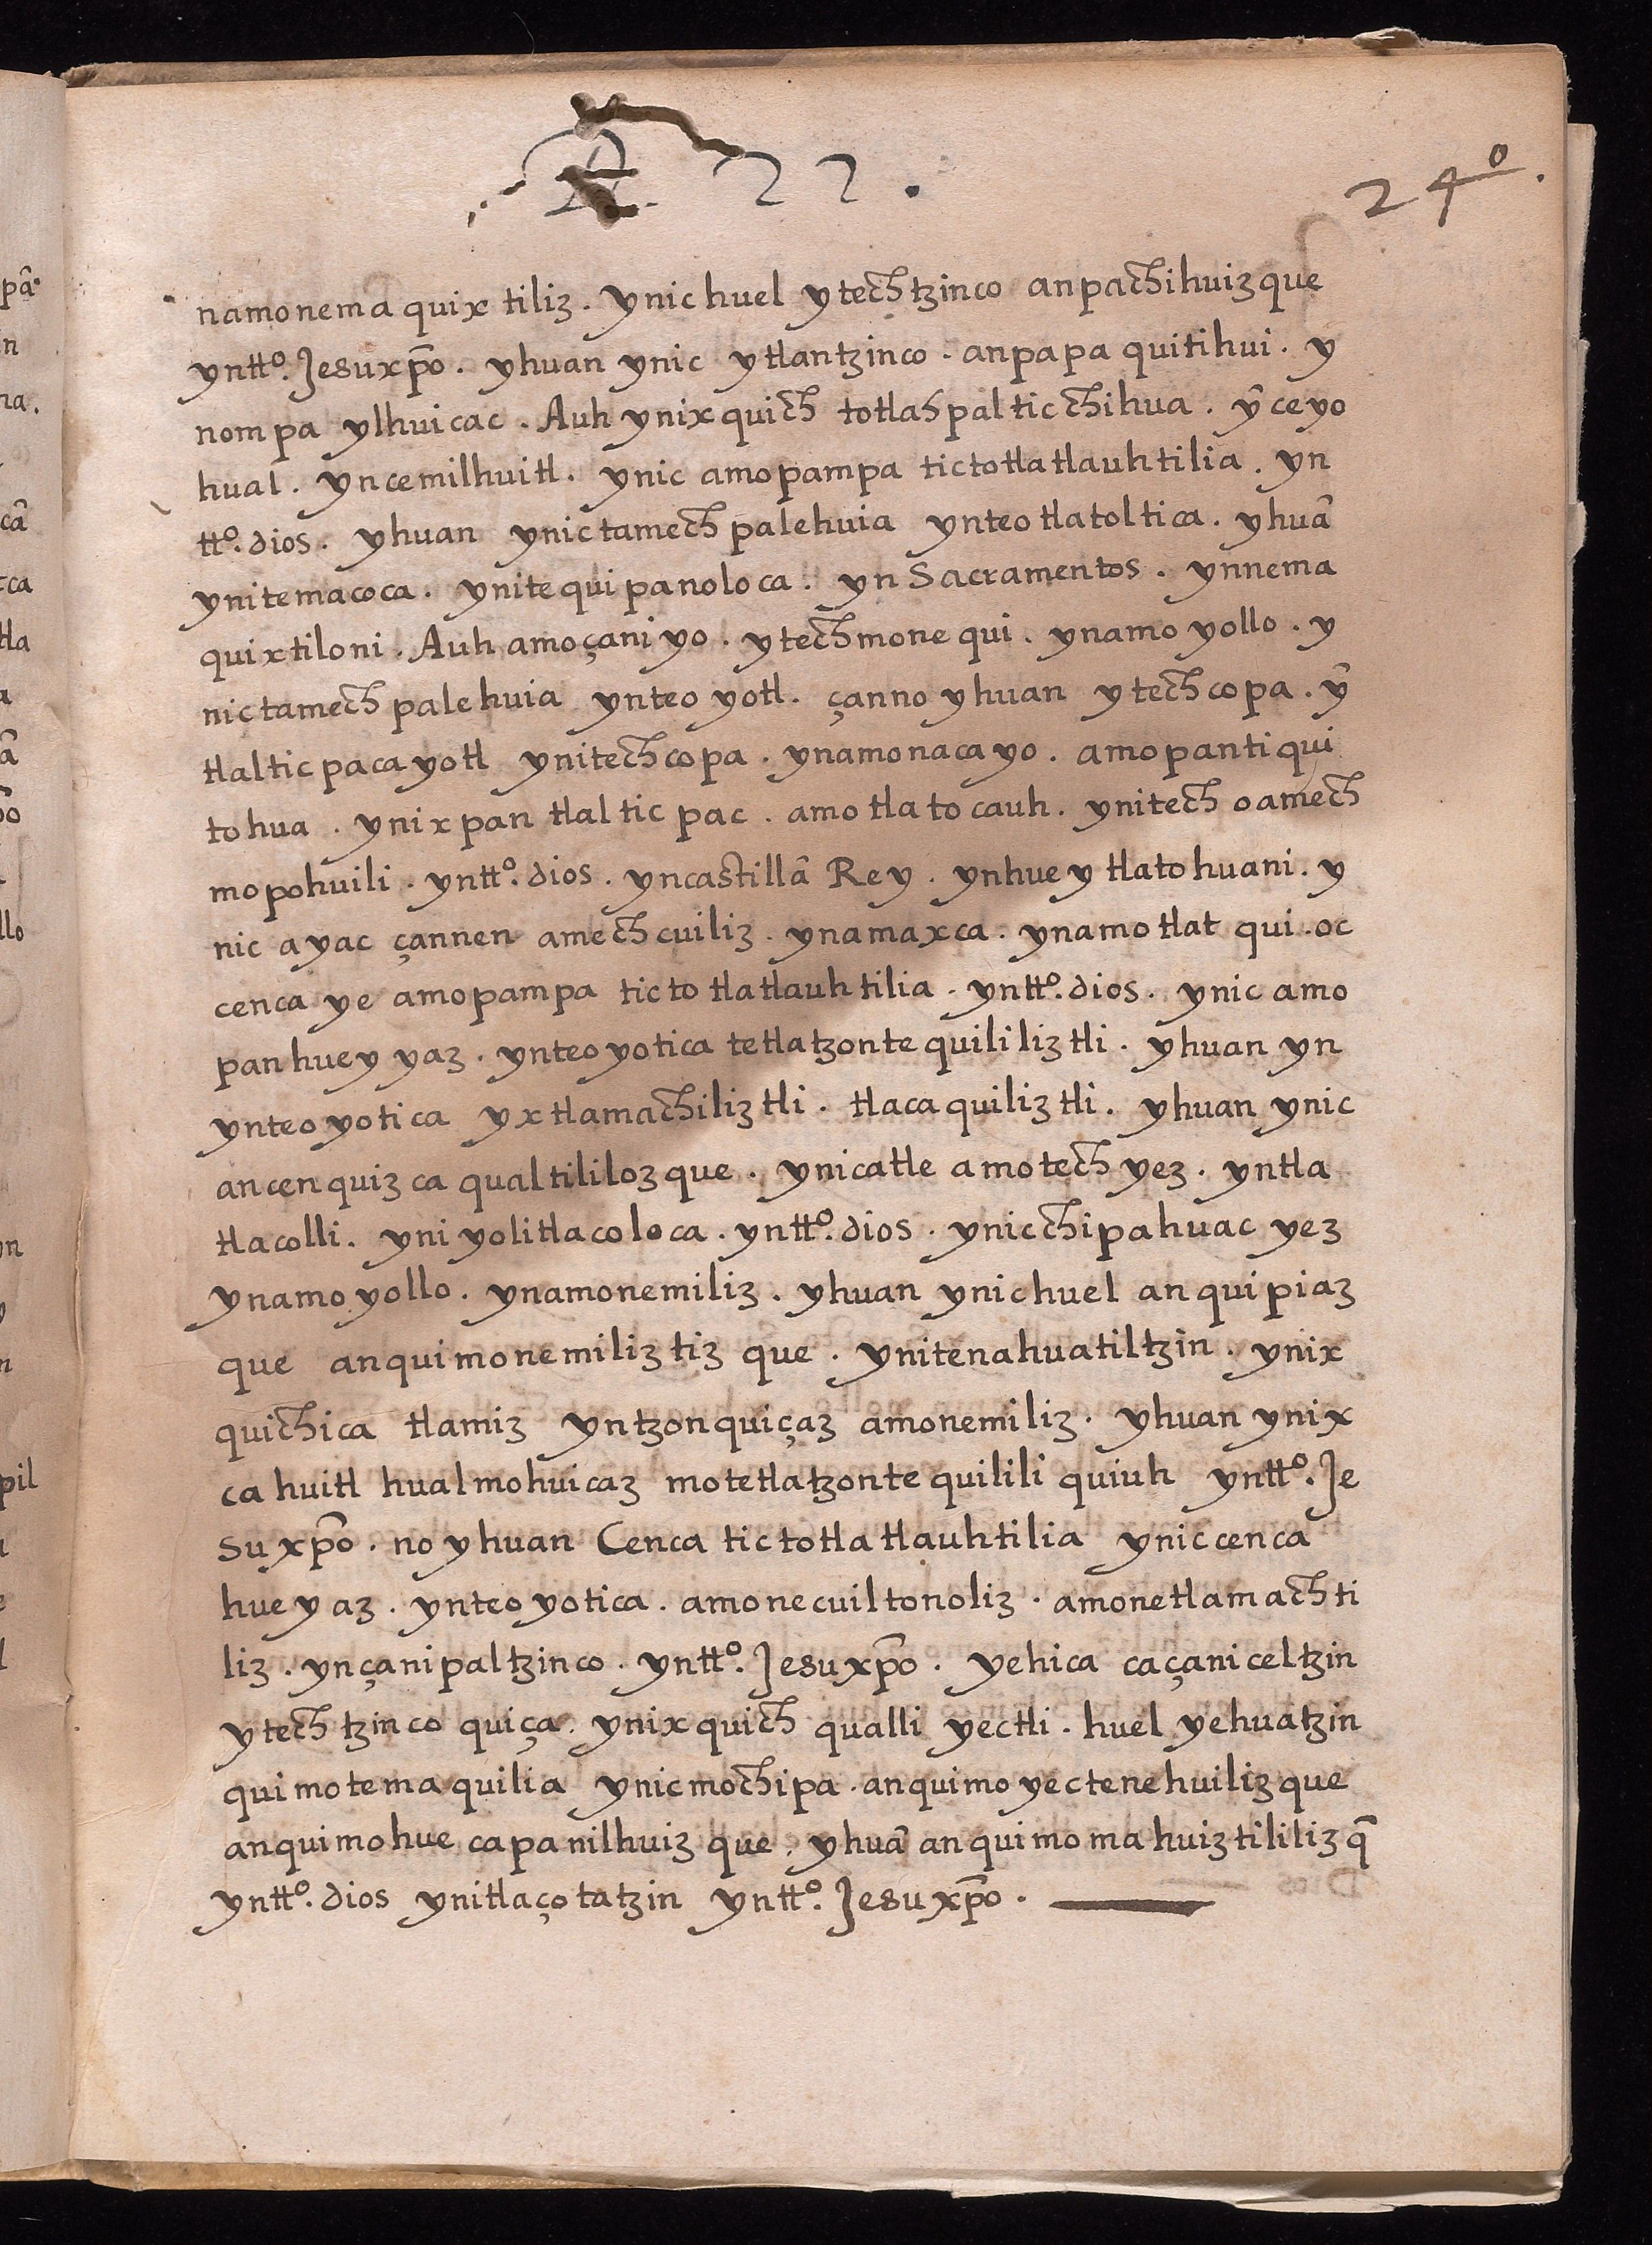 22.
24º.
namonemaquixtiliz. ynic huel ytechtzinco anpachihuizque
yntt.º Jesuxp̄o. yhuan ynic ytlantzinco. anpapaquitihui. y
nompa ylhuicac. Auh ynixquich totlahpalticchihua. ŷceyo
hual. yncemilhuitl. ynic amopampa tictotlatlauhtilia. yn
tt.º dios. yhuan ynictamechpalehuia ynteotlatoltica. yhuâ
ynitemacoca. ynitequipanoloca. yn Sacramentos. ynnema
quixtiloni. Auh amoçaniyo. ytechmonequi. ynamoyollo. y
nictamechpalehuia ynteoyotl. çanno yhuan ytechcopa. ŷ
tlalticpacayotl ynitechcopa. ynamonacayo. amopantiqui
tohua. ynixpan tlalticpac. amotlatocauh. ynitech oamech
mopohuili. yntt.º dios. yncastillâ Rey. ynhuey tlatohuani. y
nic ayac çannen amechcuiliz. ynamaxca. ynamotlatqui. oc
cenca ye amopampa tictotlatlauhtilia. yntt.º dios. ynic amo
panhueyyaz. ynteoyotica tetlatzontequililiztli. yhuan yn
ynteoyotica yxtlamachiliztli. tlacaquiliztli. yhuan ynic
ancenquizcaqualtililozque. ynicatle amotech yez. yntla
tlacolli. yniyolitlacoloca. yntt.º dios. ynicchipahuac yez
ynamoyollo. ynamonemiliz. yhuan ynichuel anquipiaz
que anquimonemiliztizque. ynitenahuatiltzin. ynix
quichica tlamiz yntzonquiçaz amonemiliz. yhuan ynix
cahuitl hualmohuicaz motetlatzontequililiquiuh yntt.º Je
suxp̄o. no yhuan Cenca tictotlatlauhtilia yniccenca
hueyaz. ynteoyotica. amonecuiltonoliz. amonetlamachti
liz. ynçanipaltzinco. yntt.º Jesuxp̄o. yehica caçaniceltzin
ytechtzinco quiça. ynixquich qualli yectli. huel yehuatzin
quimotemaquilia ynicmochipa. anquimoyectenehuilizque
anquimohuecapanilhuizque. yhuâ anquimomahuiztililizq̄
yntt.º dios ynitlaçotatzin yntt.º Jesuxp̄o.